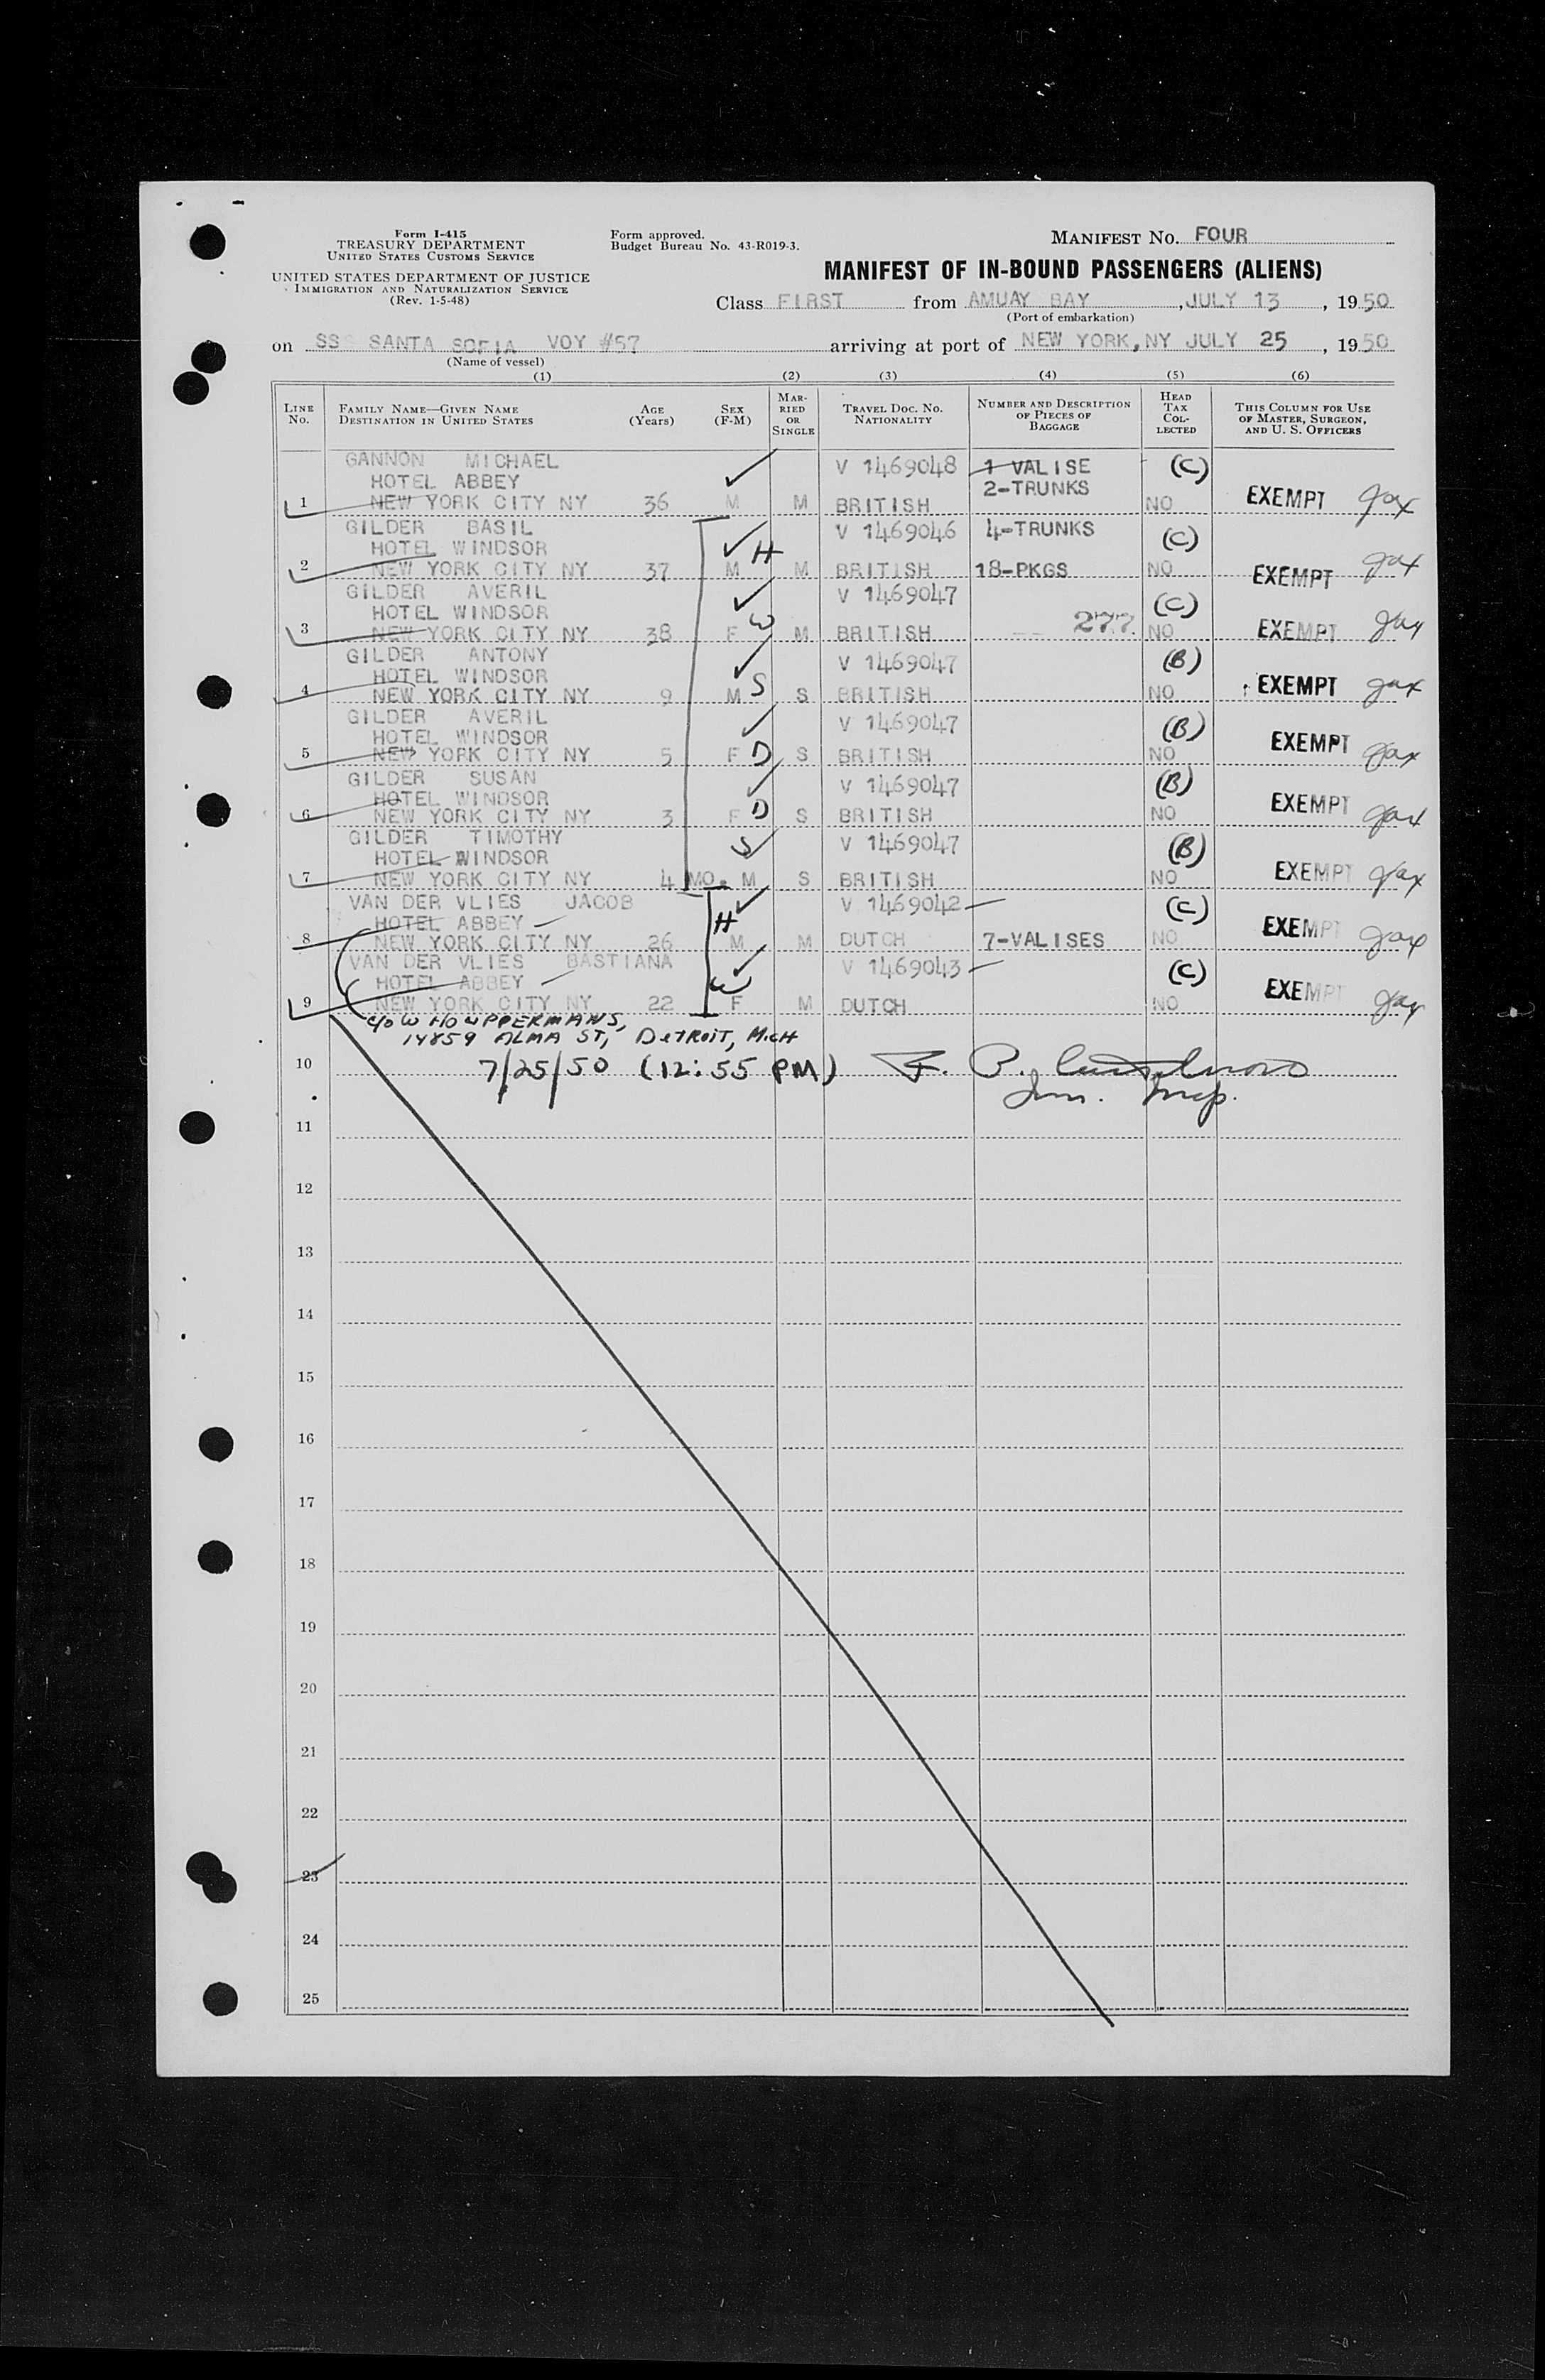 Form I-415
TREASURY DEPARTMENT
UNITED STATES CUSTOMS SERVICE
UNITED STATES DEPARTMENT OF JUSTICE
IMMIGRATION AND NATURALIZATION SERVICE
(Rev. 1-5-48)
Form approved.
Budget Bureau No. 43-R019-3.
MANIFEST NO. FOUR
MANIFEST OF IN-BOUND PASSENGERS (ALIENS)
Class FIRST from AMUAY BAY, JULY 13, 1950
(Port of embarkation)
on SS SANTA SOFIA VOY #57 arriving at port of NEW YORK, NY JULY 25, 1950
(Name of vessel)
(1) (2) (3) (4) (5) (6)
LINE NO. FAMILY NAME—GIVEN NAME DESTINATION IN UNITED STATES AGE (Years) SEX (F-M) MARRIED OR SINGLE TRAVEL DOC. NO. NATIONALITY NUMBER AND DESCRIPTION OF PIECES OF BAGGAGE HEAD TAX COLLECTED THIS COLUMN FOR USE OF MASTER, SURGEON, AND U. S. OFFICERS
GANNON MICHAEL V 1469048 1 VALISE (C)
HOTEL ABBEY 2-TRUNKS
1 NEW YORK CITY NY 36 M M BRITISH NO EXEMPT
GILDER BASIL V 1469046 4-TRUNKS (C)
HOTEL WINDSOR H
2 NEW YORK CITY NY 37 M M BRITISH 18-PKGS NO EXEMPT
GILDER AVERIL V 1469047 (C)
HOTEL WINDSOR W
3 NEW YORK CITY NY 38 F M BRITISH 277 NO EXEMPT
GILDER ANTONY V 1469047 (B)
HOTEL WINDSOR
4 NEW YORK CITY NY 9 M S S BRITISH NO EXEMPT
GILDER AVERIL V 1469047 (B)
HOTEL WINDSOR
5 NEW YORK CITY NY 5 F D S BRITISH NO EXEMPT
GILDER SUSAN V 1469047 (B)
HOTEL WINDSOR
6 NEW YORK CITY NY 3 F D S BRITISH NO EXEMPT
GILDER TIMOTHY S V 1469047 (B)
HOTEL WINDSOR
7 NEW YORK CITY NY 4 MO. M S BRITISH NO EXEMPT
VAN DER VLIES JACOB V 1469042 (C)
HOTEL ABBEY H
8 NEW YORK CITY NY 26 M M DUTCH 7-VALISES NO EXEMPT
VAN DER VLIES BASTIANA V 1469043 (C)
HOTEL ABBEY W
9 NEW YORK CITY NY 22 F M DUTCH NO EXEMPT
c/o W HOUPPERMANS,
14859 ALMA ST, DETROIT, MICH
10 7/25/50 (12:55 PM)
Imm. Insp.
11
12
13
14
15
16
17
18
19
20
21
22
23
24
25